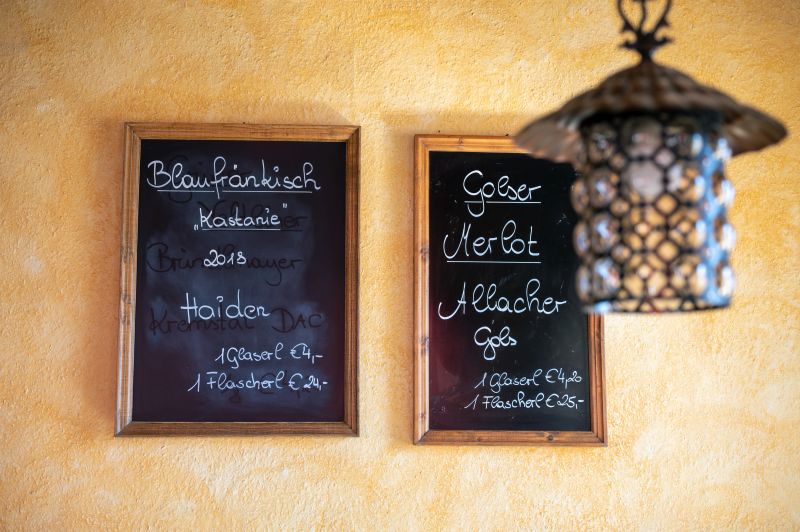 Blaufränkisch
„Kastanie"
2018
Haiden
1 Glaserl € 4,-
1 Flascherl € 24,-
Golser
Merlot
Allacher
Gols
1 Glaserl € 4,20
1 Flascherl € 25,-